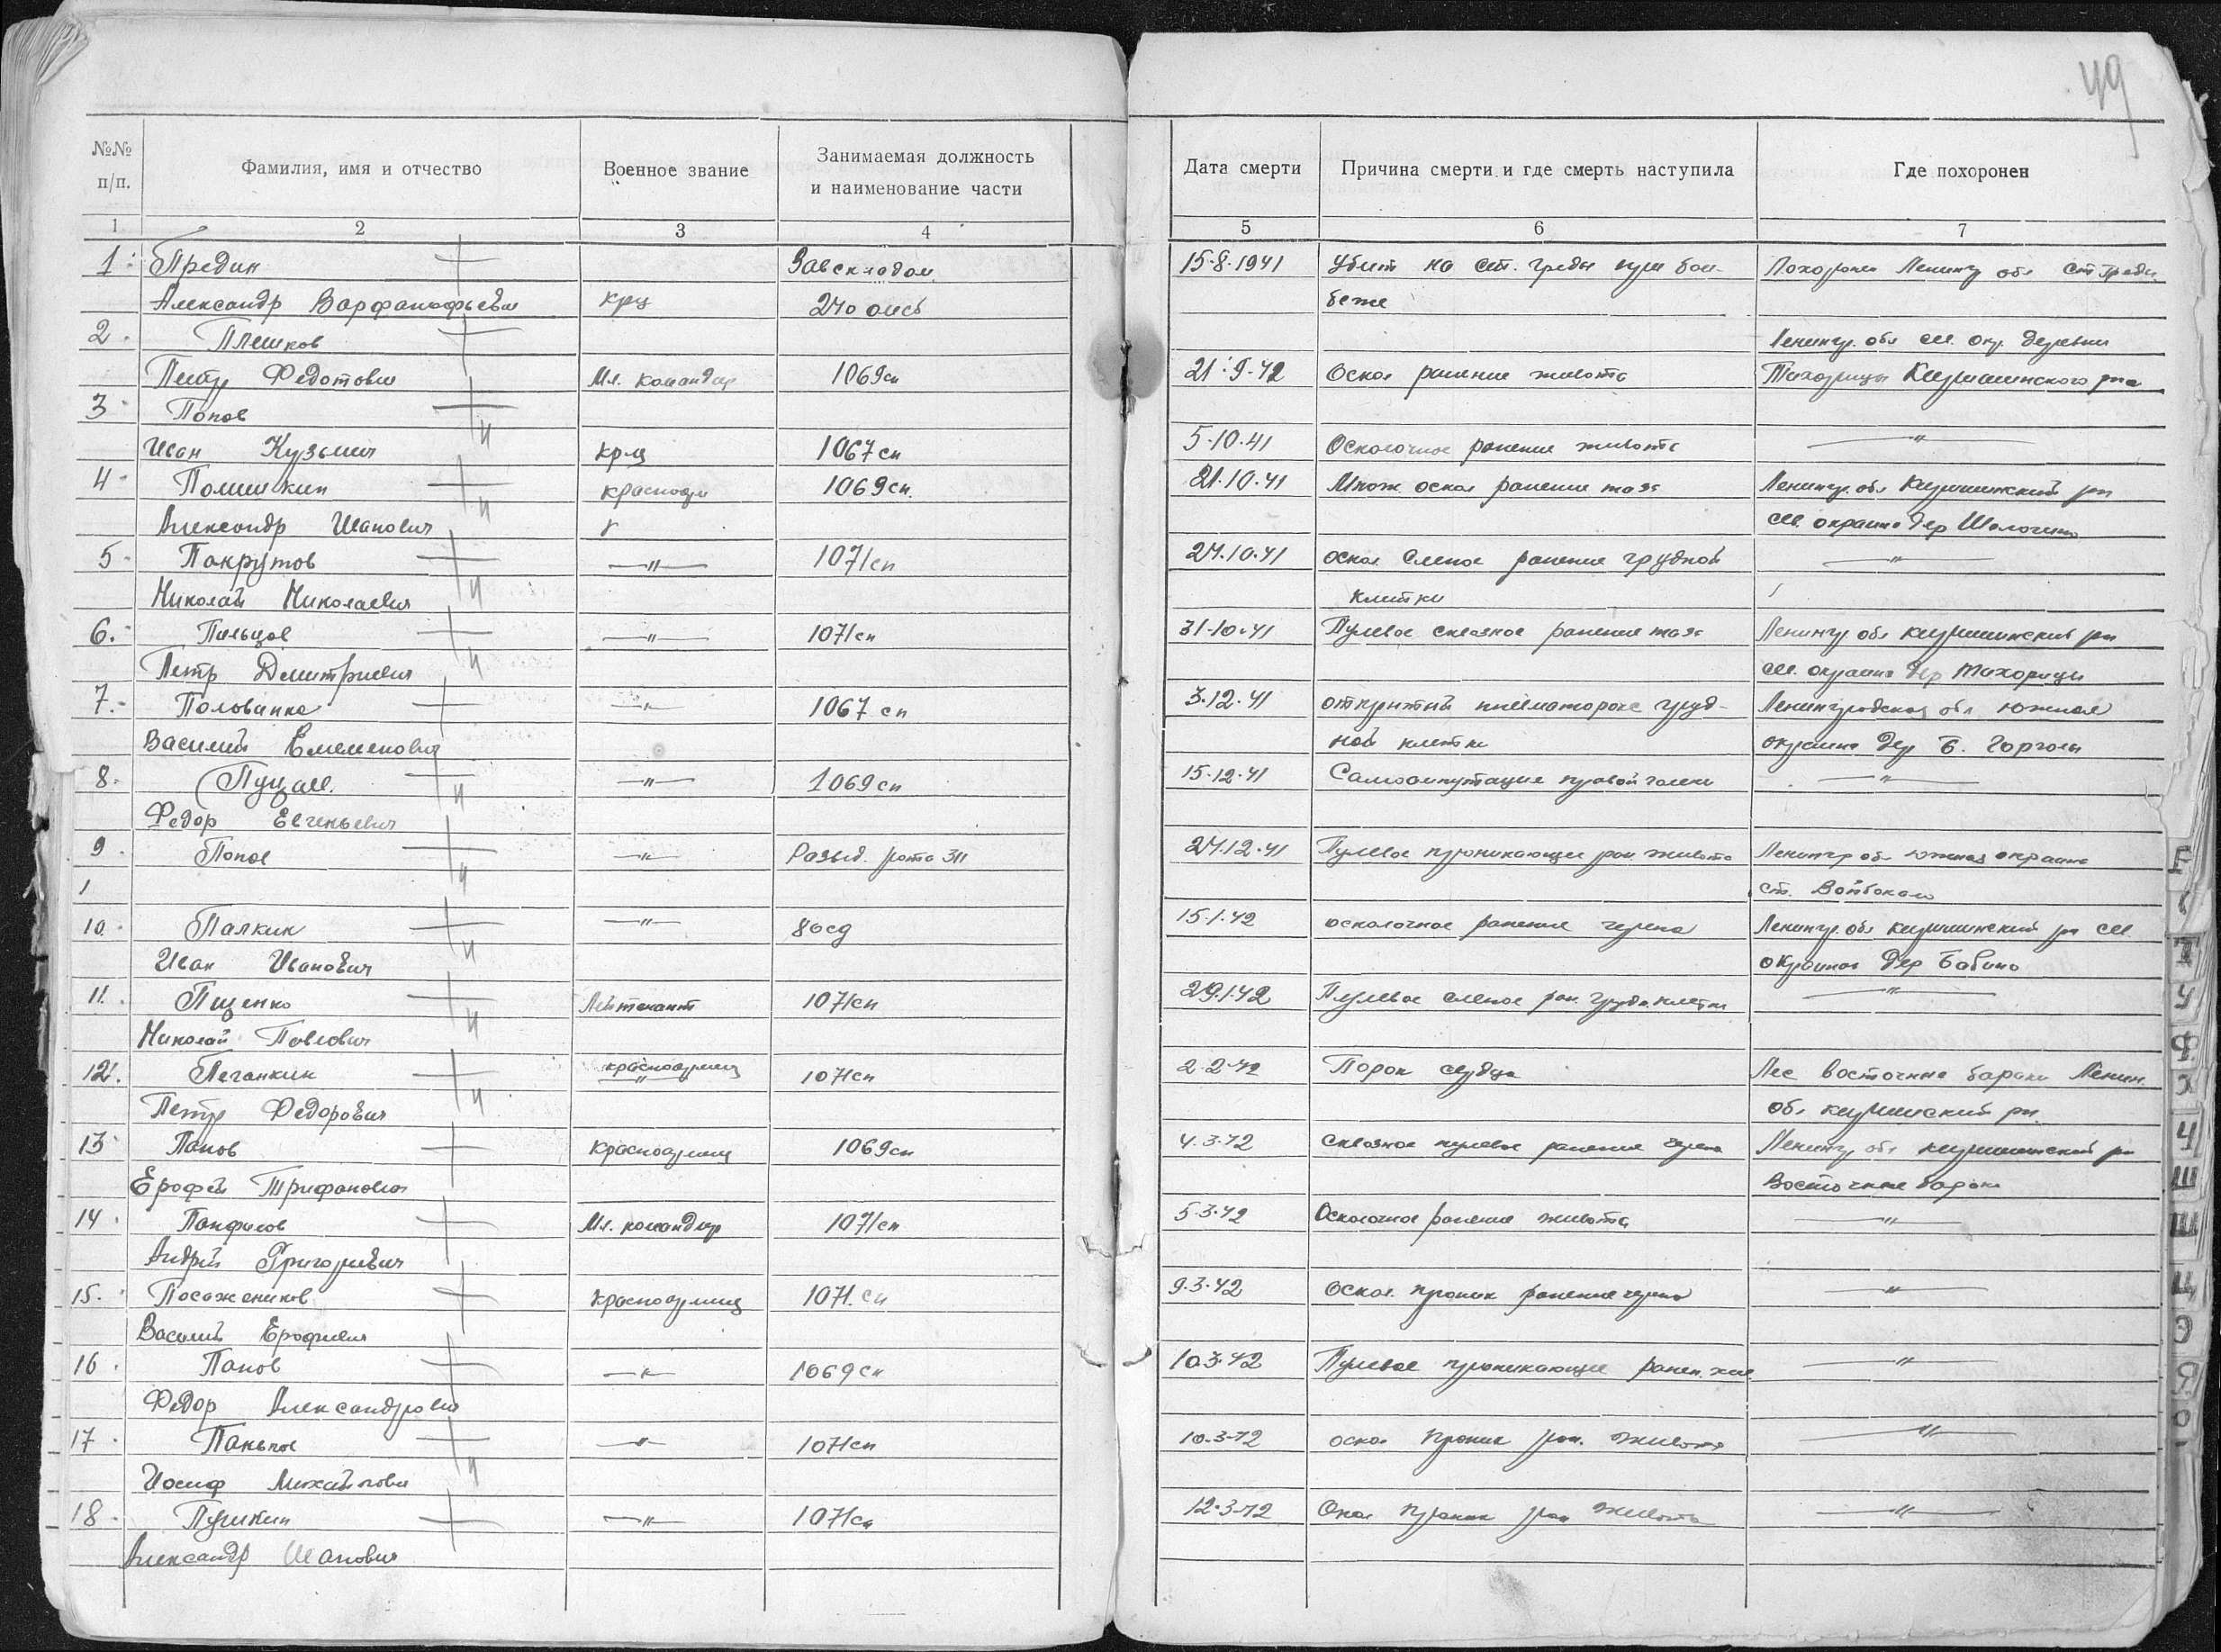 49
№№ п/п.
Фамилия, имя и отчество
Военное звание
Занимаемая должность и наименование части
Дата смерти
Причина смерти и где смерть наступила
Где похоронен
1 2 3 4 5 6 7
1. Предин Завскладом 15.8.1941 Убит на ст. Гряды при бом- Похоронен Ленингр обл ст Гряды
Александр крц 240 беже
2. Плешков Ленингр. обл сев. окр. деревни
Петр Федотович Мл. командир 1069сп 21.9.42 Оскол ранение живота
3 Попов
Иван Кузьмич крц 1067сп 5.10.41 Осколочное ранение живота —"—
4 красноар 1069сп. 21.10.41 Множ. оскол ранение таза Ленингр. обл Киришинский рн
Александр Иванович сев. окраина дер
5 Покрутов —"— 1071сп 24.10.41 оскол слепое ранение грудной —"—
Николай Николаевич клетки
6. Пальцов —"— 1071сп 31.10.41 Пулевое сквозное ранение таза Ленингр обл Киришинский рн
Петр Дмитриевич сев. окраина дер Тихорицы
7. Половинка —"— 1067 сп 3.12.41 открытый пневматоракс груд- Ленинградская обл южная
Василий ной клетки окраина дер Б.
8. —"— 1069сп 15.12.41 Самоампутация правой голени —"—
Федор Евгеньевич
9 Попов —"— Развед. рота 311 24.12.41 Пулевое проникающее ран живота Ленингр обл южная окраина
ст. Войбокало
10. Палкин —"— 80сд 15.1.42 осколочное ранение черепа Ленингр. обл Киришинский рн сев.
Иван Иванович окраина дер Бабино
11. Пищенко Лейтенант 1071сп 29.1.42 Пулевое слепое ран. груд. клетки —"—
Николай Павлович
12. Печанкин красноармеец —"— 1071сп 2.2.42 Порок сердца Лес восточнее бараки Ленин.
Петр Федорович обл Киришский рн.
13 Панов красноармеец 1069сп 4.3.42 Сквозное пулевое ранение черепа Ленингр обл Киришинский рн
Ерофей Трифанович Восточнее барак
14 Панфилов Мл. командир 1071сп 5.3.42 Осколочное ранение живота —"—
Андрей Григорьевич
15. красноармеец 1071.сп 9.3.42 Оскол. проник ранение черепа —"—
Василий Ерофеевич
16 Панов —"— 1069сп 10.3.42 Пулевое проникающее ранен. жив —"—
Федор Александрович
17 —"— 1071сп 10.3.42 оскол проник ран. живота —"—
Иосиф Михайлович
18 Пушкин —"— 1071сп 12.3.42 Оскол проник ран живота —"—
Александр Иванович
Т
У
Ф
Х
Ч
Ш
Щ
Ц
Э
Я